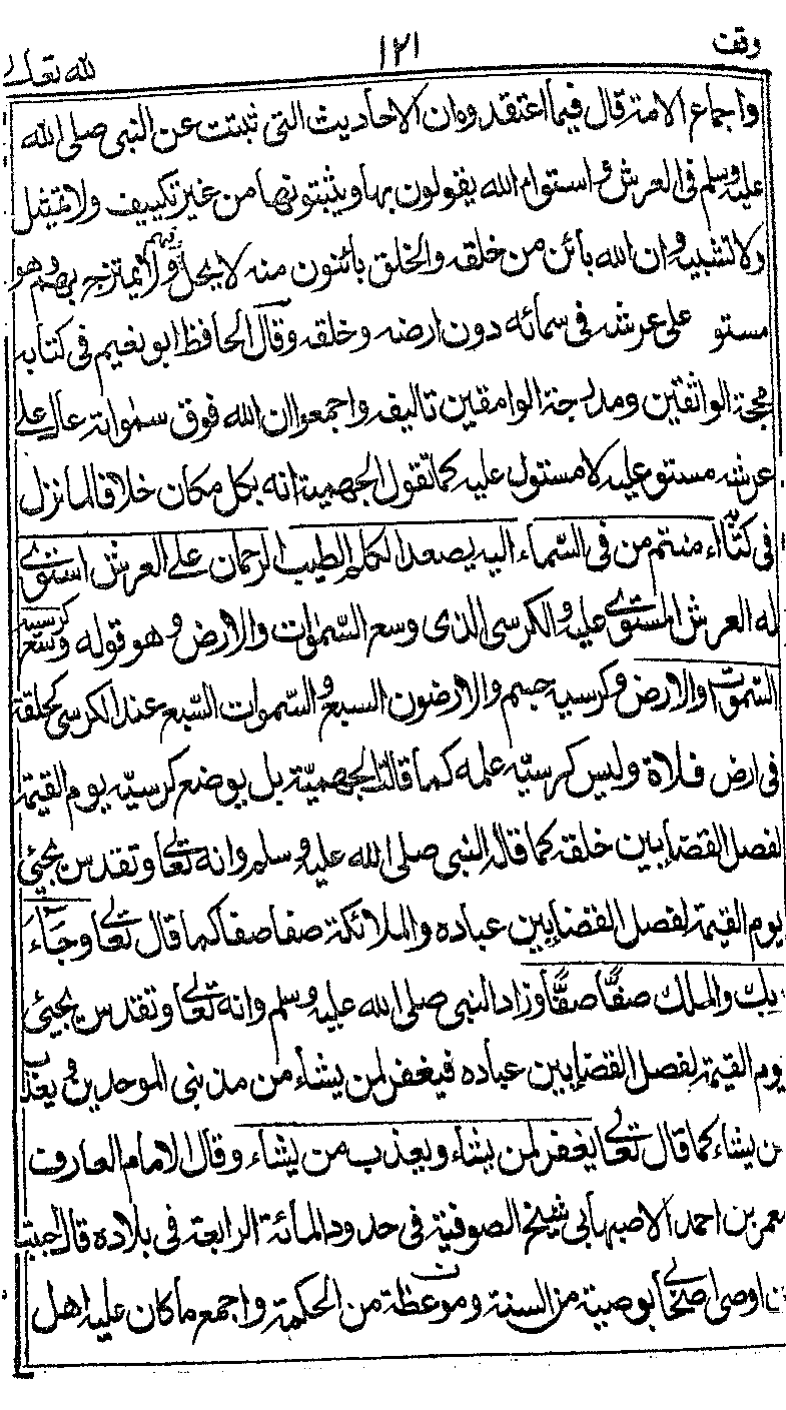 وقف
١٢١
لله تعالى
واجماع الامة قال فيما اعتقدوه ان الاحاديث التى ثبتت عن النبى صلى الله
عليه وسلم فى العرش و استواء الله يقولون بها ويثبتونها من غير تكييف ولا تمثيل
ولا تشبيه و ان الله بائن من خلقه والخلق بائنون منه لا يحل فيهم ولا يمتزج بهم وهو
مستو على عرشه فى سمائه دون ارضه وخلقه وقال الحافظ ابو نعيم فى كتابه
محجة الواثقين ومدرجة الوامقين تاليفه واجمعوا ان الله فوق سموات عال على
عرشه مستو عليه لا مستول عليه كما تقول الجهمية انه بكل مكان خلافا لما نزل
فى كتابه ء امنتم من فى السماء اليه يصعد الكلم الطيب الرحمان على العرش استوى
له العرش المستوى عليه و الكرسى الذى وسع السموات والارض و هو قوله وسع كرسيه
السموت والارض وكرسيه جسم والارضون السبع و السموات السبع عند الكرسى كحلقة
فى ارض فلاة وليس كرسيه علمه كما قالت الجهمية بل يوضع كرسيه يوم القيمة
لفصل القضا بين خلقه كما قاله النبى صلى الله عليه و سلم وانه تعالى وتقدس يجيئ
يوم القيمة لفصل القضا بين عباده والملائكة صفا صفا كما قال تعالى وجاء
ربك والملك صفًّا صفًّا وزاد النبى صلى الله عليه وسلم وانه تعالى وتقدس يجيئ
يوم القيمة لفصل القضا بين عباده فيغفر لمن يشاء من مذنبى الموحدين و يعذب
من يشاء كما قال تعالى يغفر لمن يشاء ويعذب من يشاء وقال الامام العارف
معمر بن احمد الاصبهانى شيخ الصوفية فى حدود المائة الرابعة فى بلاده قال احببت
ان اوصى اصحابى بوصية من السنة وموعظة من الحكمة واجمع ما كان عليه اهل